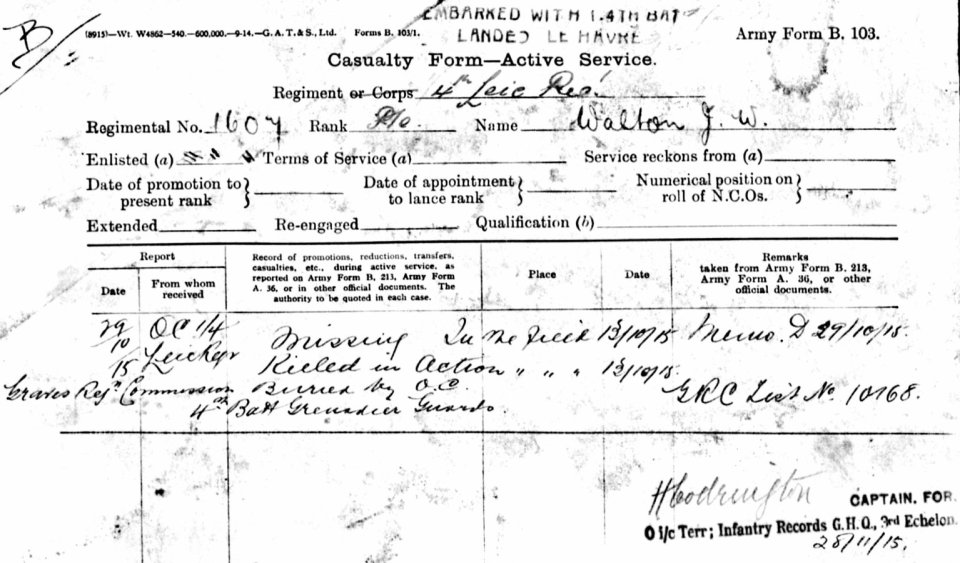 EMBARKED WITH 1.4TH BAT
B/
(8915)—Wt. W4862—540.—600,000.—9-14.—G. A. T. & S., Ltd. Forms B. 103/1. LANDED LE HAVRE Army Form B. 103.
Casualty Form—Active Service.
Regiment or Corps 4th Leic Reg!
Regimental No. 1607 Rank Pte. Name Walton J. W.
Enlisted (a) Terms of Service (a) Service reckons from (a)
Date of promotion to present rank } Date of appointment to lance rank } Numerical position on roll of N.C.Os. }
Extended Re-engaged Qualification (b)
Report
Date
From whom received
Record of promotions, reductions, transfers, casualties, etc., during active service, as reported on Army Form B. 213, Army Form A. 36, or in other official documents. The authority to be quoted in each case.
Place
Date
Remarks
taken from Army Form B. 213, Army Form A. 36, or other official documents.
29/10 OC 1/4 Missing In the Field 13/10/15 Memo. D 29/10/15.
15 Killed in Action " " " 13/10/15
Graves Regn Commission Burried by O.C. GRC List No 10768.
4th Batt Grenadier Guards.
H Codrington
CAPTAIN, FOR.
O i/c Terr; Infantry Records G.H.Q., 3rd Echelon.
28/11/15.